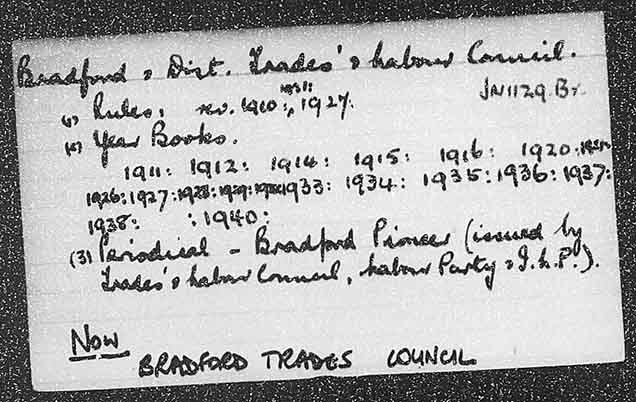 Bradford & Dist. Trades' & Labour Council.
JN1129.Br.
(1) Rules, rev. 1910:, 1927.
(2) Year Books.
1911: 1912: 1914: 1915: 1916: 1920:
1926:1927:1928:1929: 1933: 1934: 1935:1936:1937:
1938: :1940:
(3) Periodical - Bradford Pioneer (issued by
Trades' & Labour Council, Labour Party & I.L.P.).
Now
BRADFORD TRADES COUNCIL